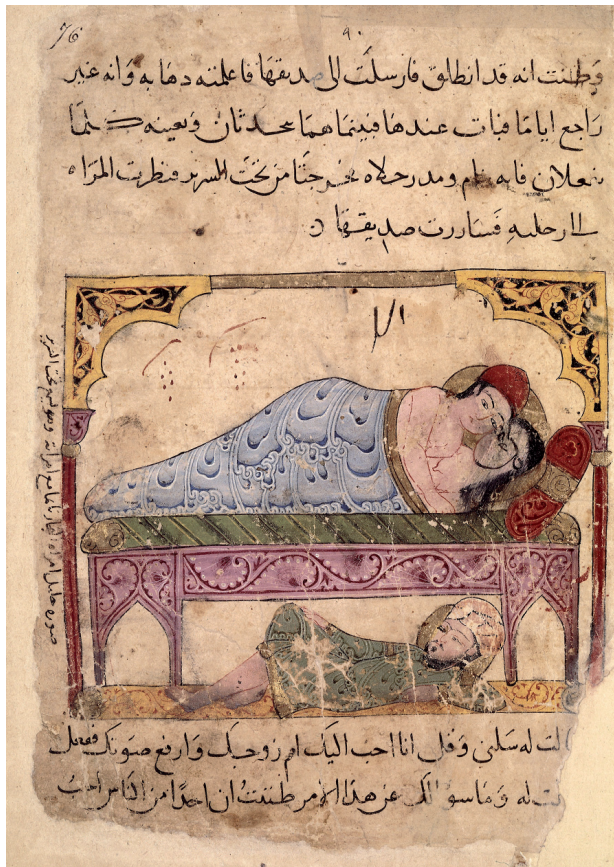 ٩٠
وظنت انه قد انطلق فارسلت الى صديقها فاعلمته دهابه وانه غير
راجع اياما فبات عندها فبينما هما يتحدثان وبعينه كلما
يفعلان فانه نام ومد رجلاه فخرجتا من تحت السرير فنظرت المراه
الا رجليه فساررت صديقها
صورة خليل امراة النجار نايم مع امراته وهو نايم تحت السرير
لت له سلنى وقل انا احب اليك ام زوجك وارفع صوتك ففعل
لت له وما سوالك عن هذا الامر طننت ان احدا من الناس احب